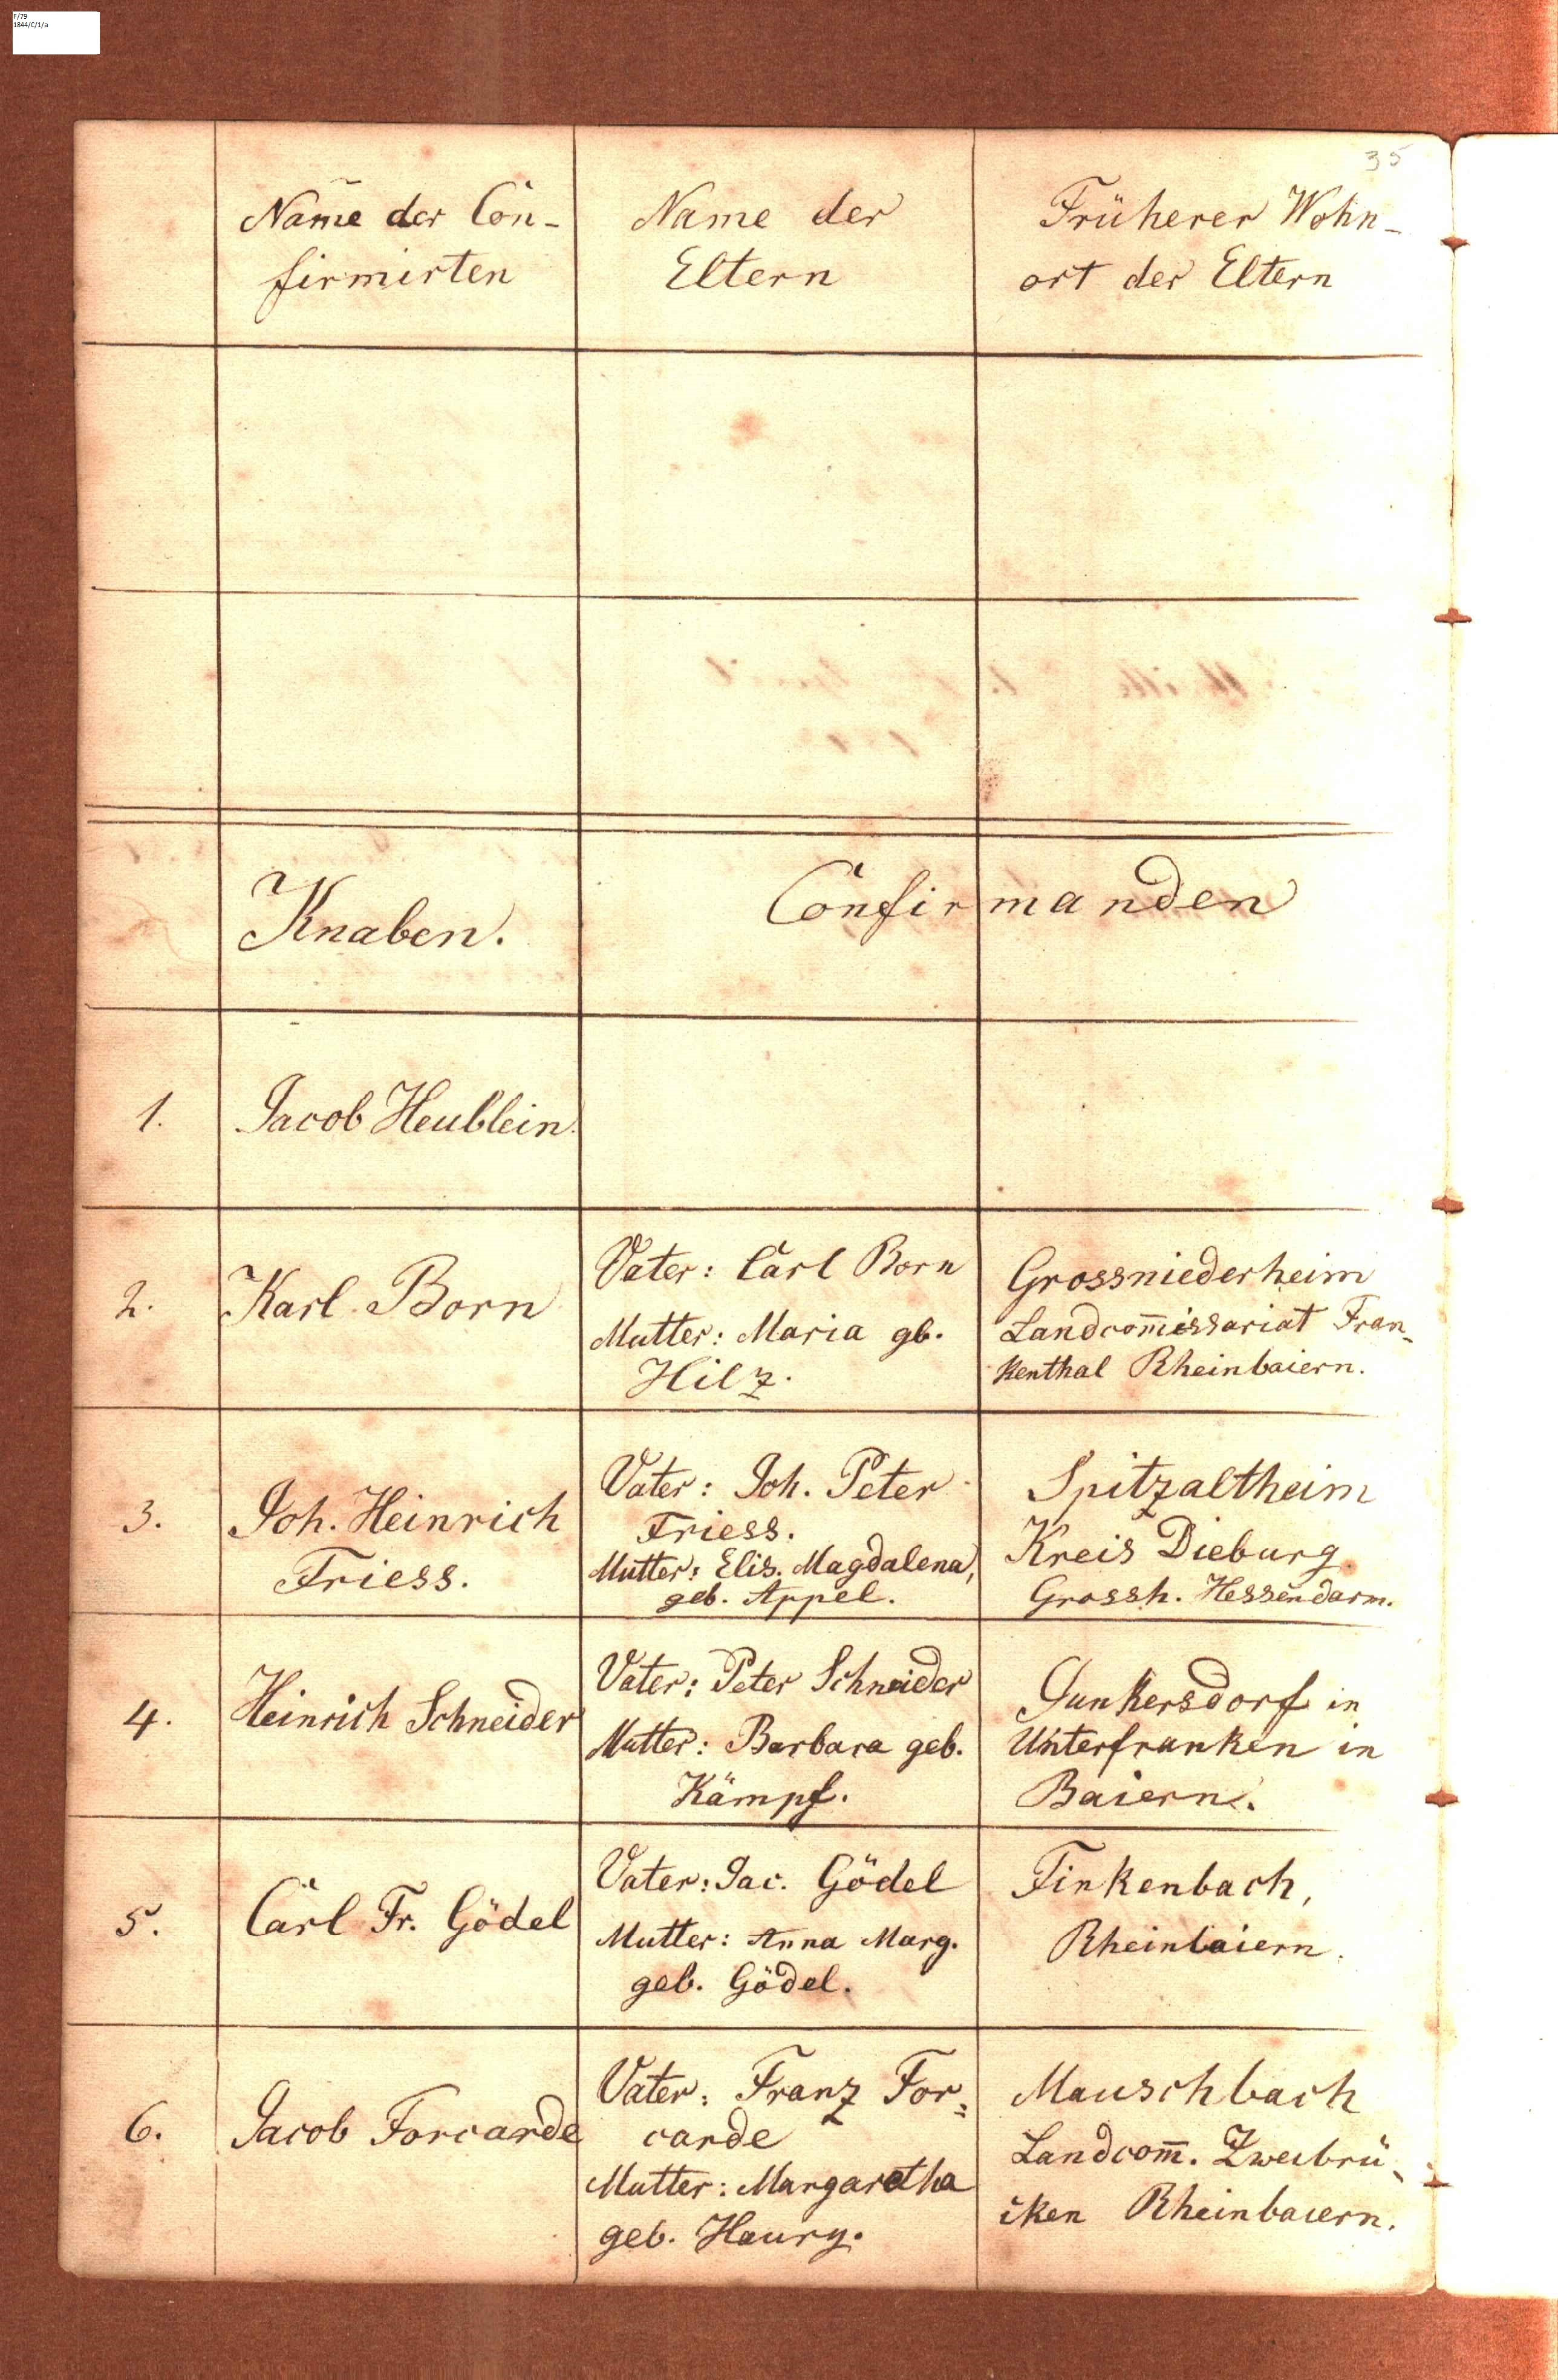 F/79
1844/C/1/a
35
Name der Con-
firmirten
Name der
Eltern
Früherer Wohn-
ort der Eltern
Knaben.
Confirmanden
1.
Jacob Heublein.
2.
Karl Born
Vater: Carl Born
Mutter: Maria gb.
Hilz.
Grossniederheim
Landcom̄issariat Fran-
kenthal Rheinbaiern.
3.
Joh. Heinrich
Friess.
Vater: Joh. Peter
Friess.
Mutter: Elis. Magdalena,
geb. Appel.
Spitzaltheim
Kreis Dieburg
Grossh. Hessendarm.
4.
Heinrich Schneider
Vater: Peter Schneider
Mutter: Barbara geb.
Kämpf.
Junkersdorf in
Unterfranken in
Baiern.
5.
Carl Fr. Gödel
Vater: Jac. Gödel
Mutter: Anna Marg.
geb. Gödel.
Finkenbach,
Rheinbaiern.
6.
Jacob Forcarde
Vater: Franz For=
carde
Mutter: Margaretha
geb. Haury.
Mauschbach
Landcom̄. Zweibrü-
cken Rheinbaiern.